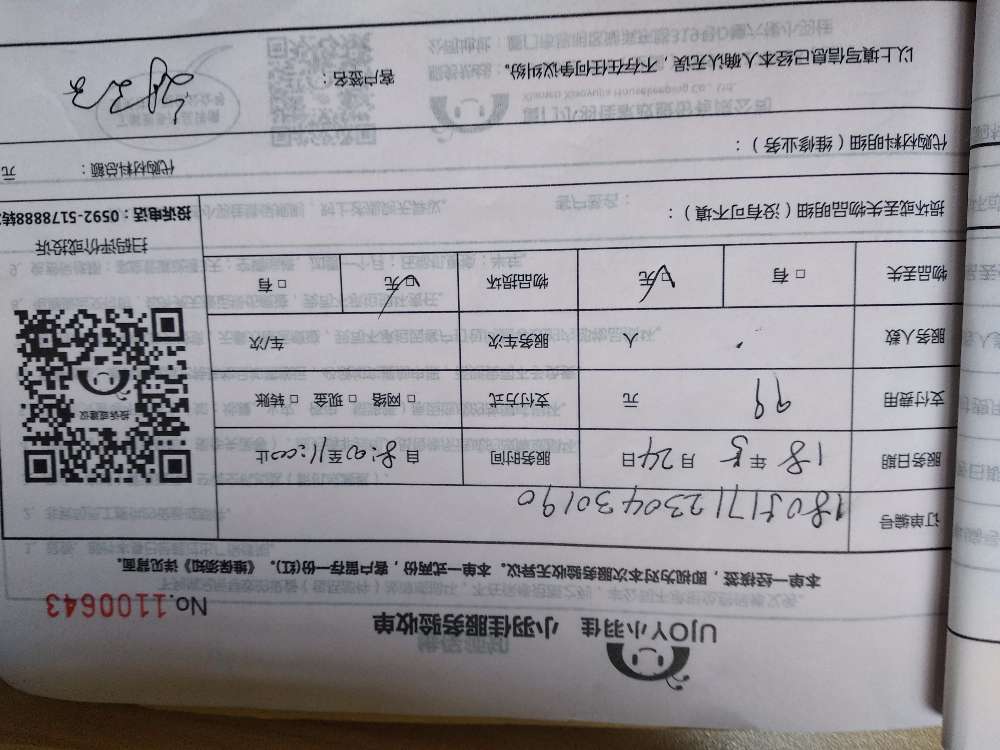 UJOY小羽佳 小羽佳服务验收单
No.1100643
本单一经接签，即视为对本次服务验收无异议。本单一式两份，客户留存一份(红)。《维保须知》详见背面。
订单编号 180517123043 0190
服务日期 18年5月24日 服务时间 自8:00至11:00止
支付费用 99 元 支付方式 □ 网络 □ 现金 □ 转账
服务人数 人 服务车次 车/次
物品丢失 □ 有 ☑无 物品损坏 ☑无 □ 有
投诉或建议
扫码评价或投诉
投诉电话：0592-5178888转
损坏或丢失物品明细（没有可不填）：
代购材料明细（维修业务）：
代购材料总额： 元
以上填写信息已经本人确认无误，不存在任何争议纠纷。 客户签名：